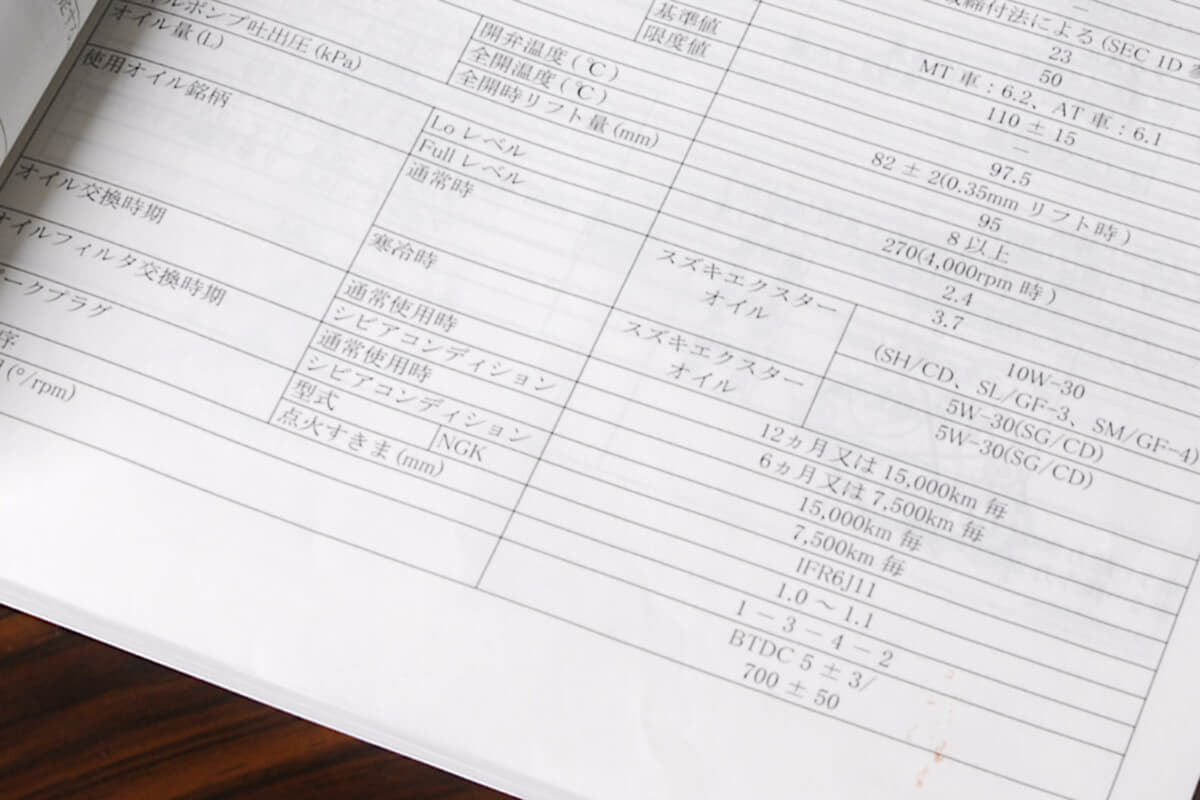 締付法による (SEC 1D
基準値 23
限度値 50
MT 車 : 6.2、AT 車 : 6.1
110 ± 15
－
開弁温度 (℃) 97.5
82 ± 2(0.35mm リフト時)
全開温度 (℃) 95
全開時リフト量 (mm) 8 以上
ルポンプ吐出圧 (kPa) 270(4,000rpm 時)
オイル量 (L) Lo レベル 2.4
Full レベル 3.7
使用オイル銘柄 通常時 スズキエクスター
オイル
10W-30
(SH/CD、SL/GF-3、SM/GF-4)
5W-30(SG/CD)
寒冷時 スズキエクスター
オイル
5W-30(SG/CD)
オイル交換時期 通常使用時 12ヵ月又は 15,000km 毎
シビアコンディション 6ヵ月又は 7,500km 毎
オイルフィルタ交換時期 通常使用時 15,000km 毎
シビアコンディション 7,500km 毎
ークプラグ 型式 NGK IFR6J11
点火すきま (mm) 1.0 ～ 1.1
序 1 － 3 － 4 － 2
(°/rpm) BTDC 5 ± 3/
700 ± 50